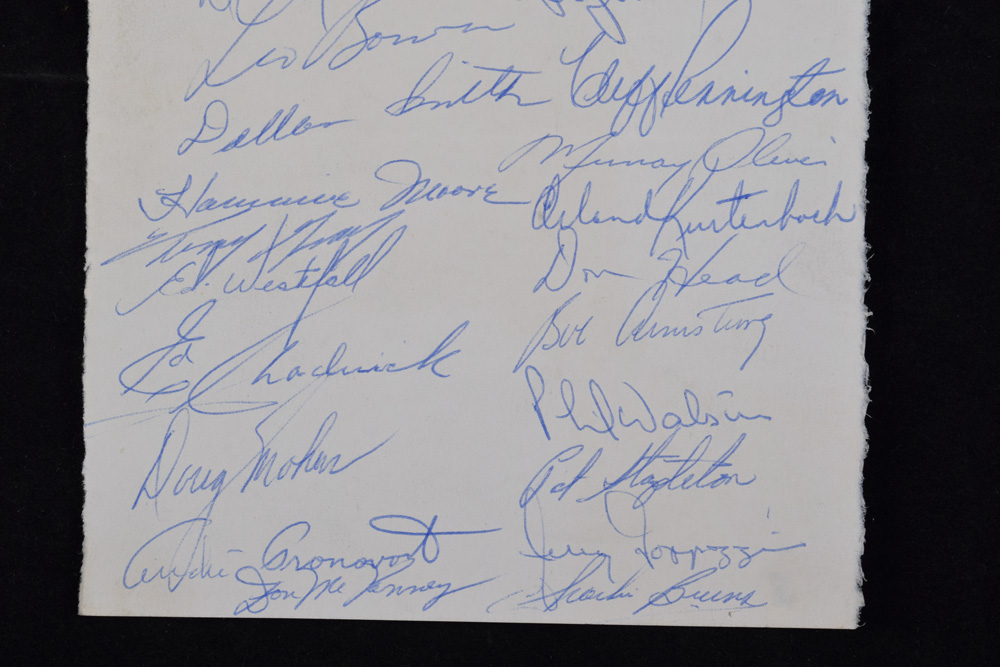 Leo Boivin
Dallas Smith Cliff Pennington
Murray Oliver
Hammie Moore Orland Kurtenbach
Terry Gray
Ed. Westfall Don Head
Bob Armstrong
Ed Chadwick
Phil Watson
Doug Mohns
Pat Stapleton
Andre Pronovost Jerry Toppazzini
Don McKenney Charlie Burns